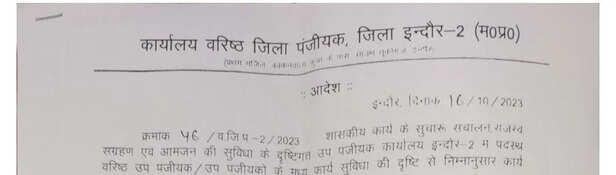 कार्यालय वरिष्ठ जिला पंजीयक, जिला इन्दौर-2 (म0प्र0)
:: आदेश ::
इन्दौर, दिनांक 16/10/2023
क्रमांक 46 /व.जि.प-2/2023 शासकीय कार्य के सुचारू संचालन,राजस्व
संग्रहण एवं आमजन की सुविधा के दृष्टिगत उप पंजीयक कार्यालय इन्दौर-2 में पदस्थ
वरिष्ठ उप पंजीयक/उप पंजीयकों के मध्य कार्य सुविधा की दृष्टि से निम्नानुसार कार्य